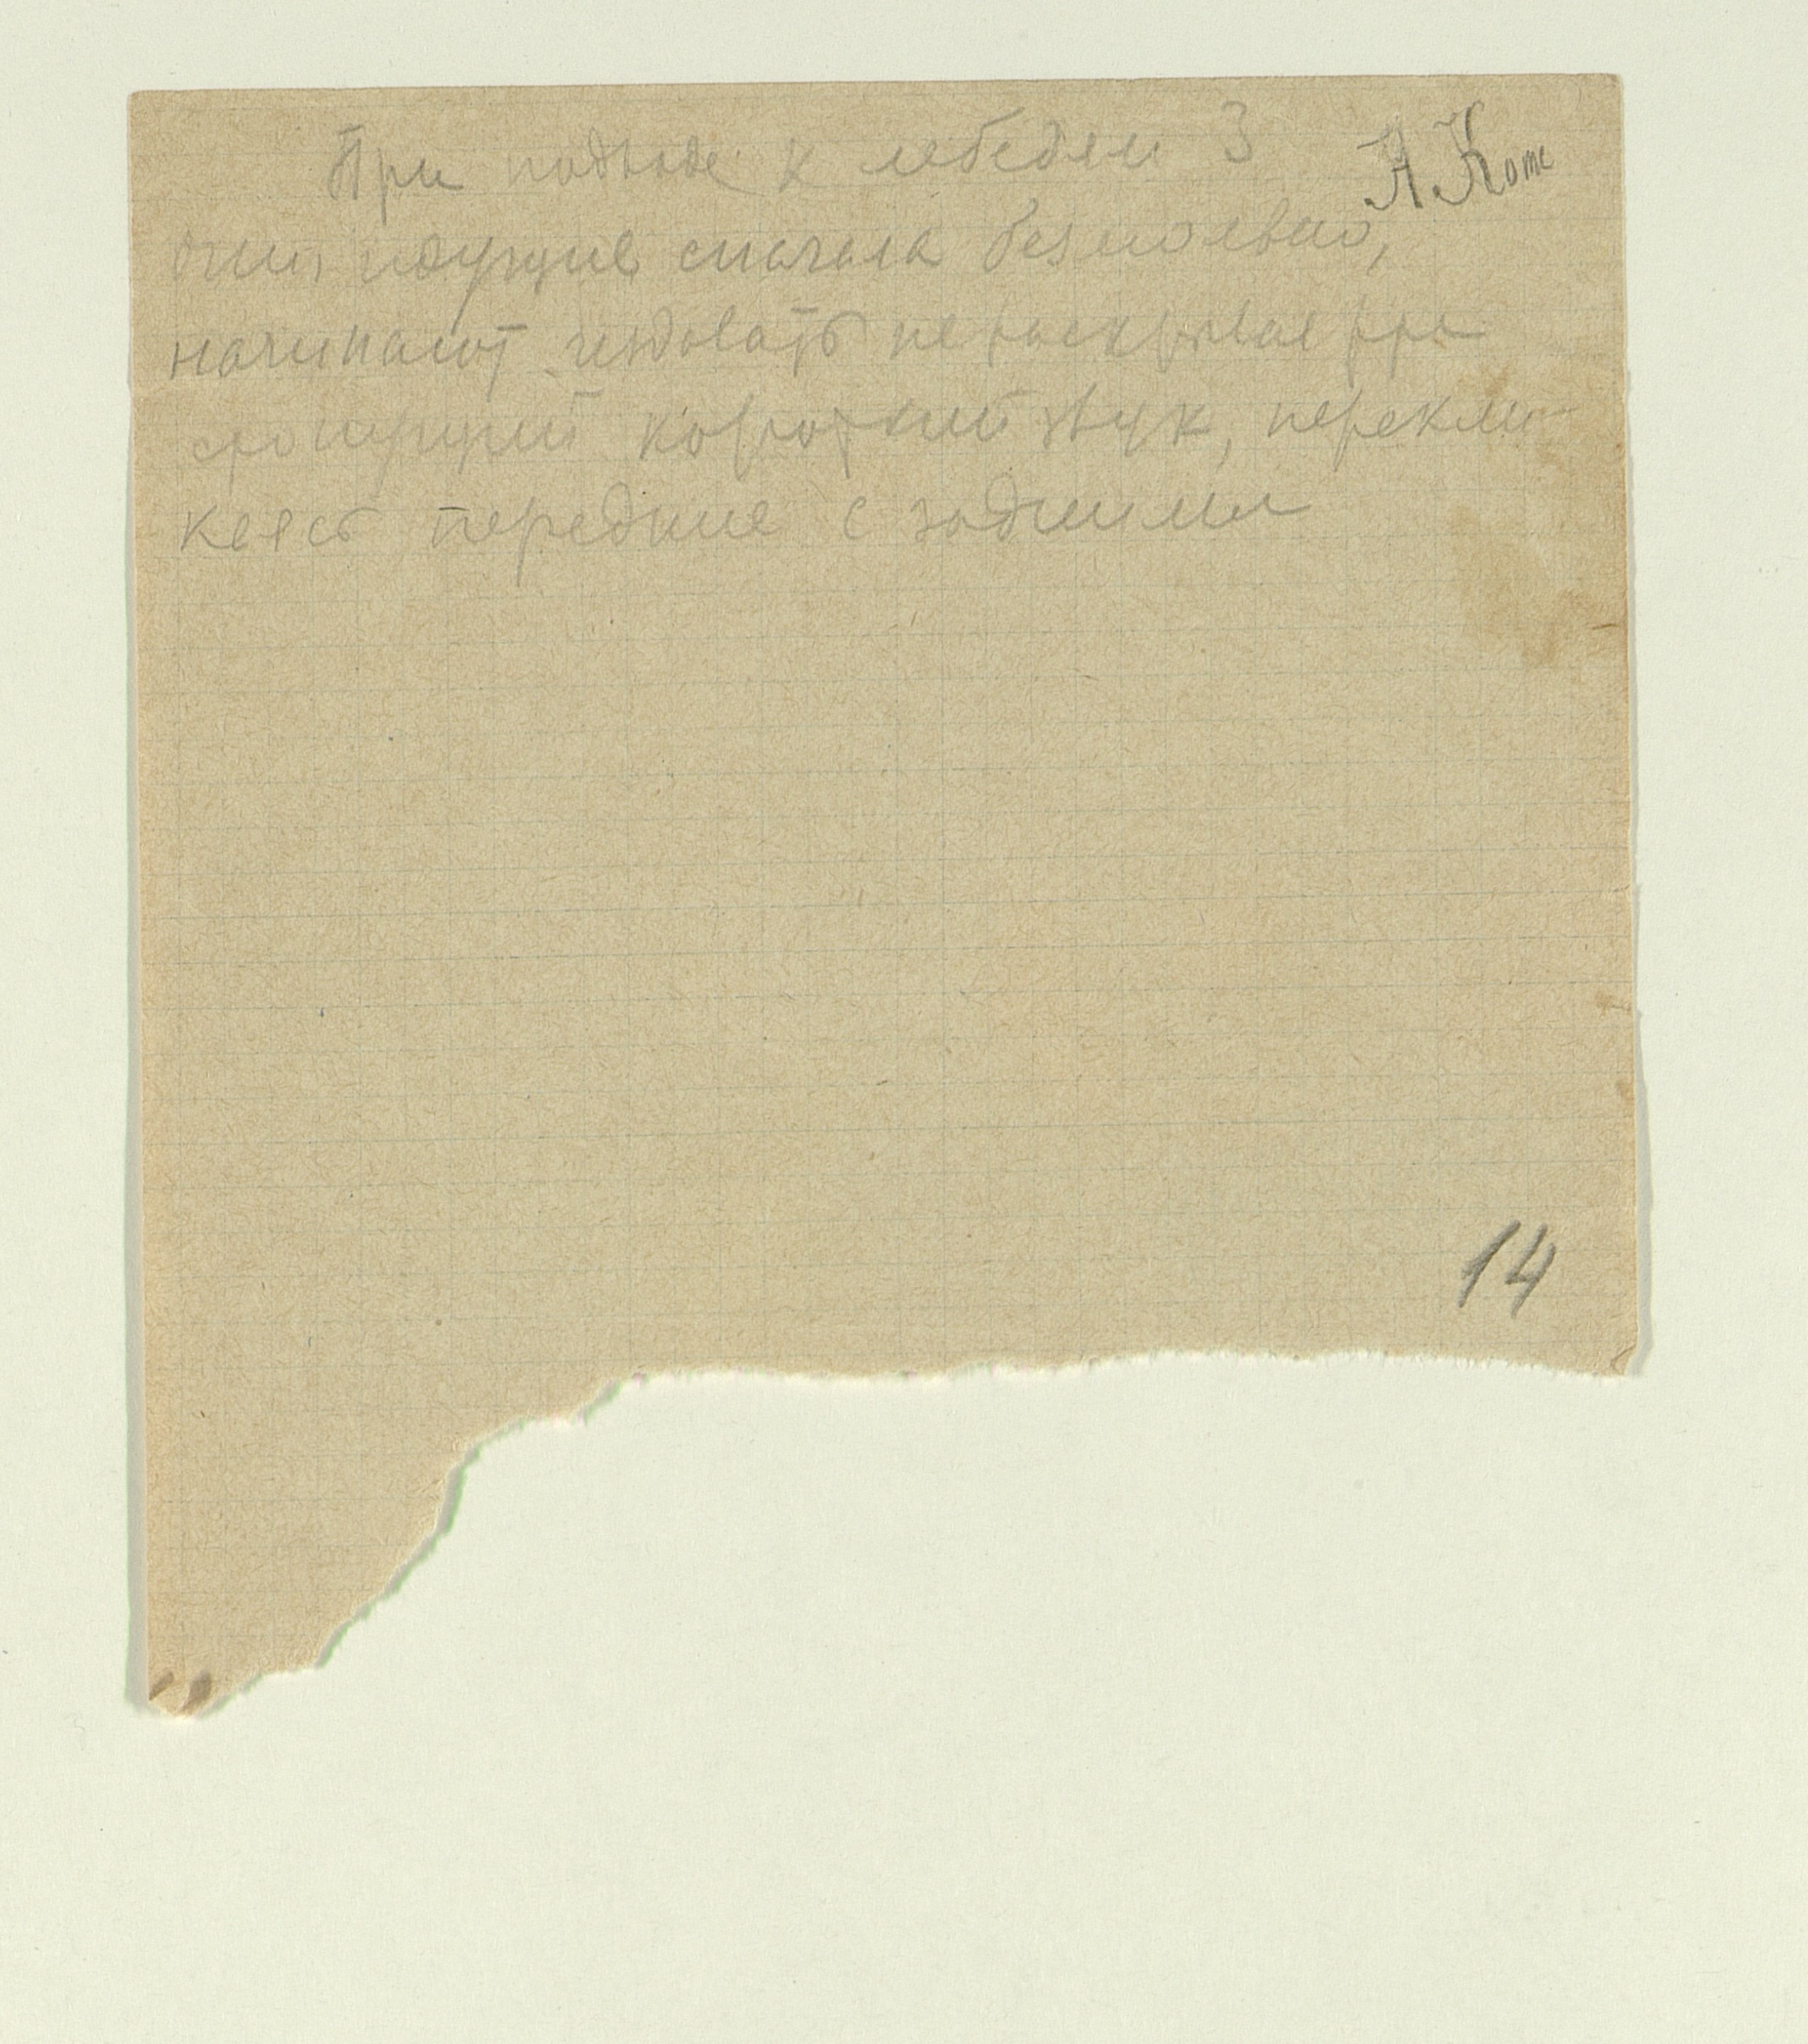 При подходе к лебедям 3
А. Котс
они, идущие сначала безмолвно,
начинают издавать не раскрывая
короткий звук, перекли
каясь передние с задними
14